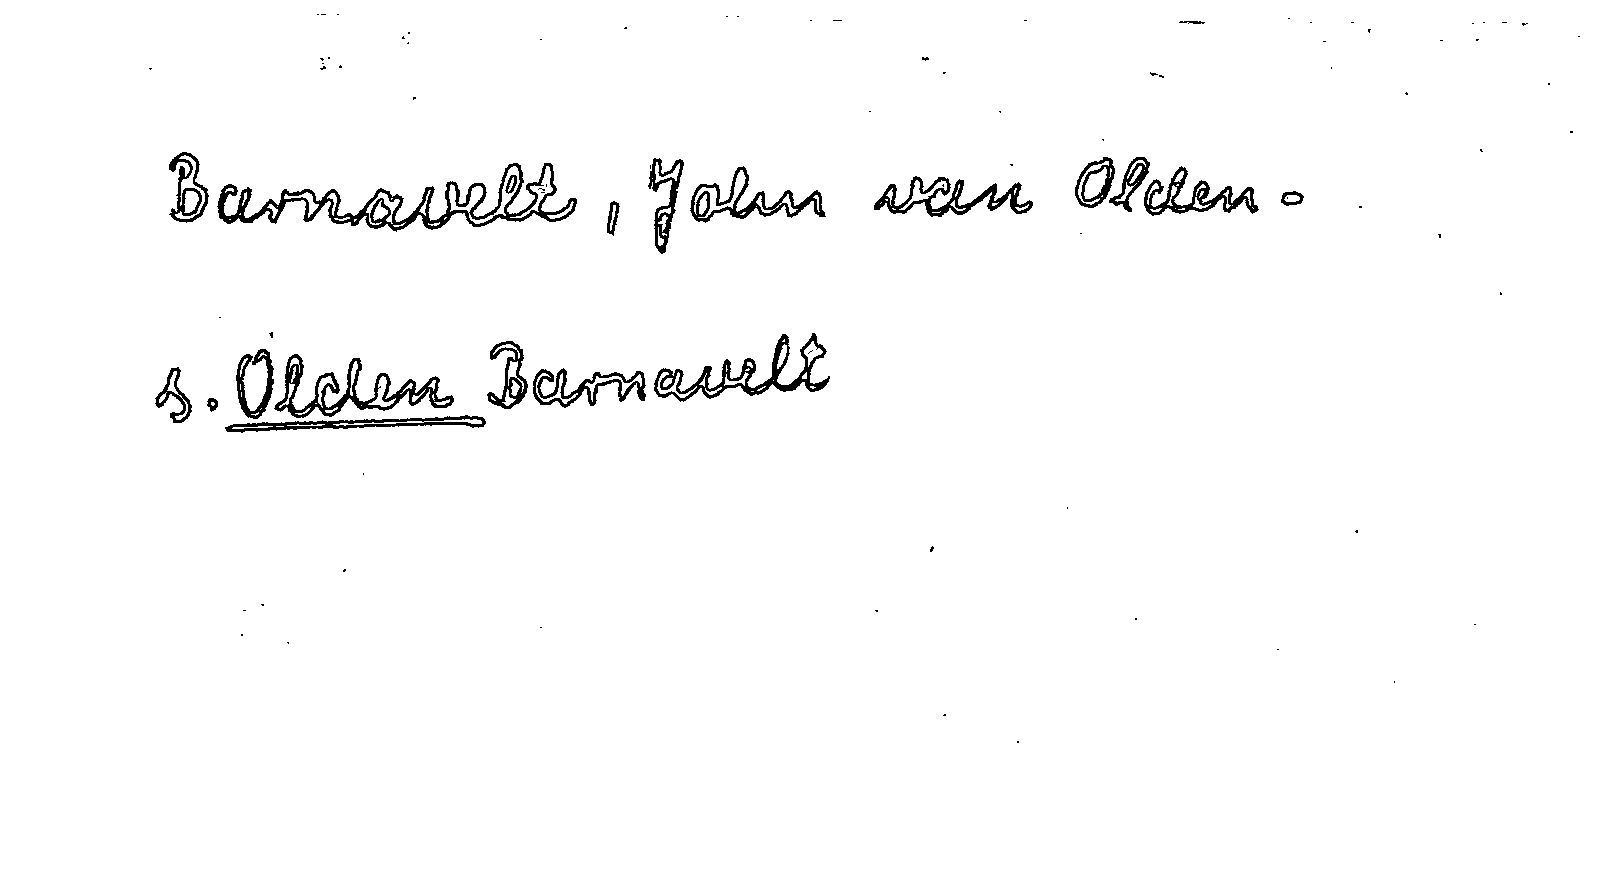 Barnavelt, John van Olden-
s. Olden Barnavelt